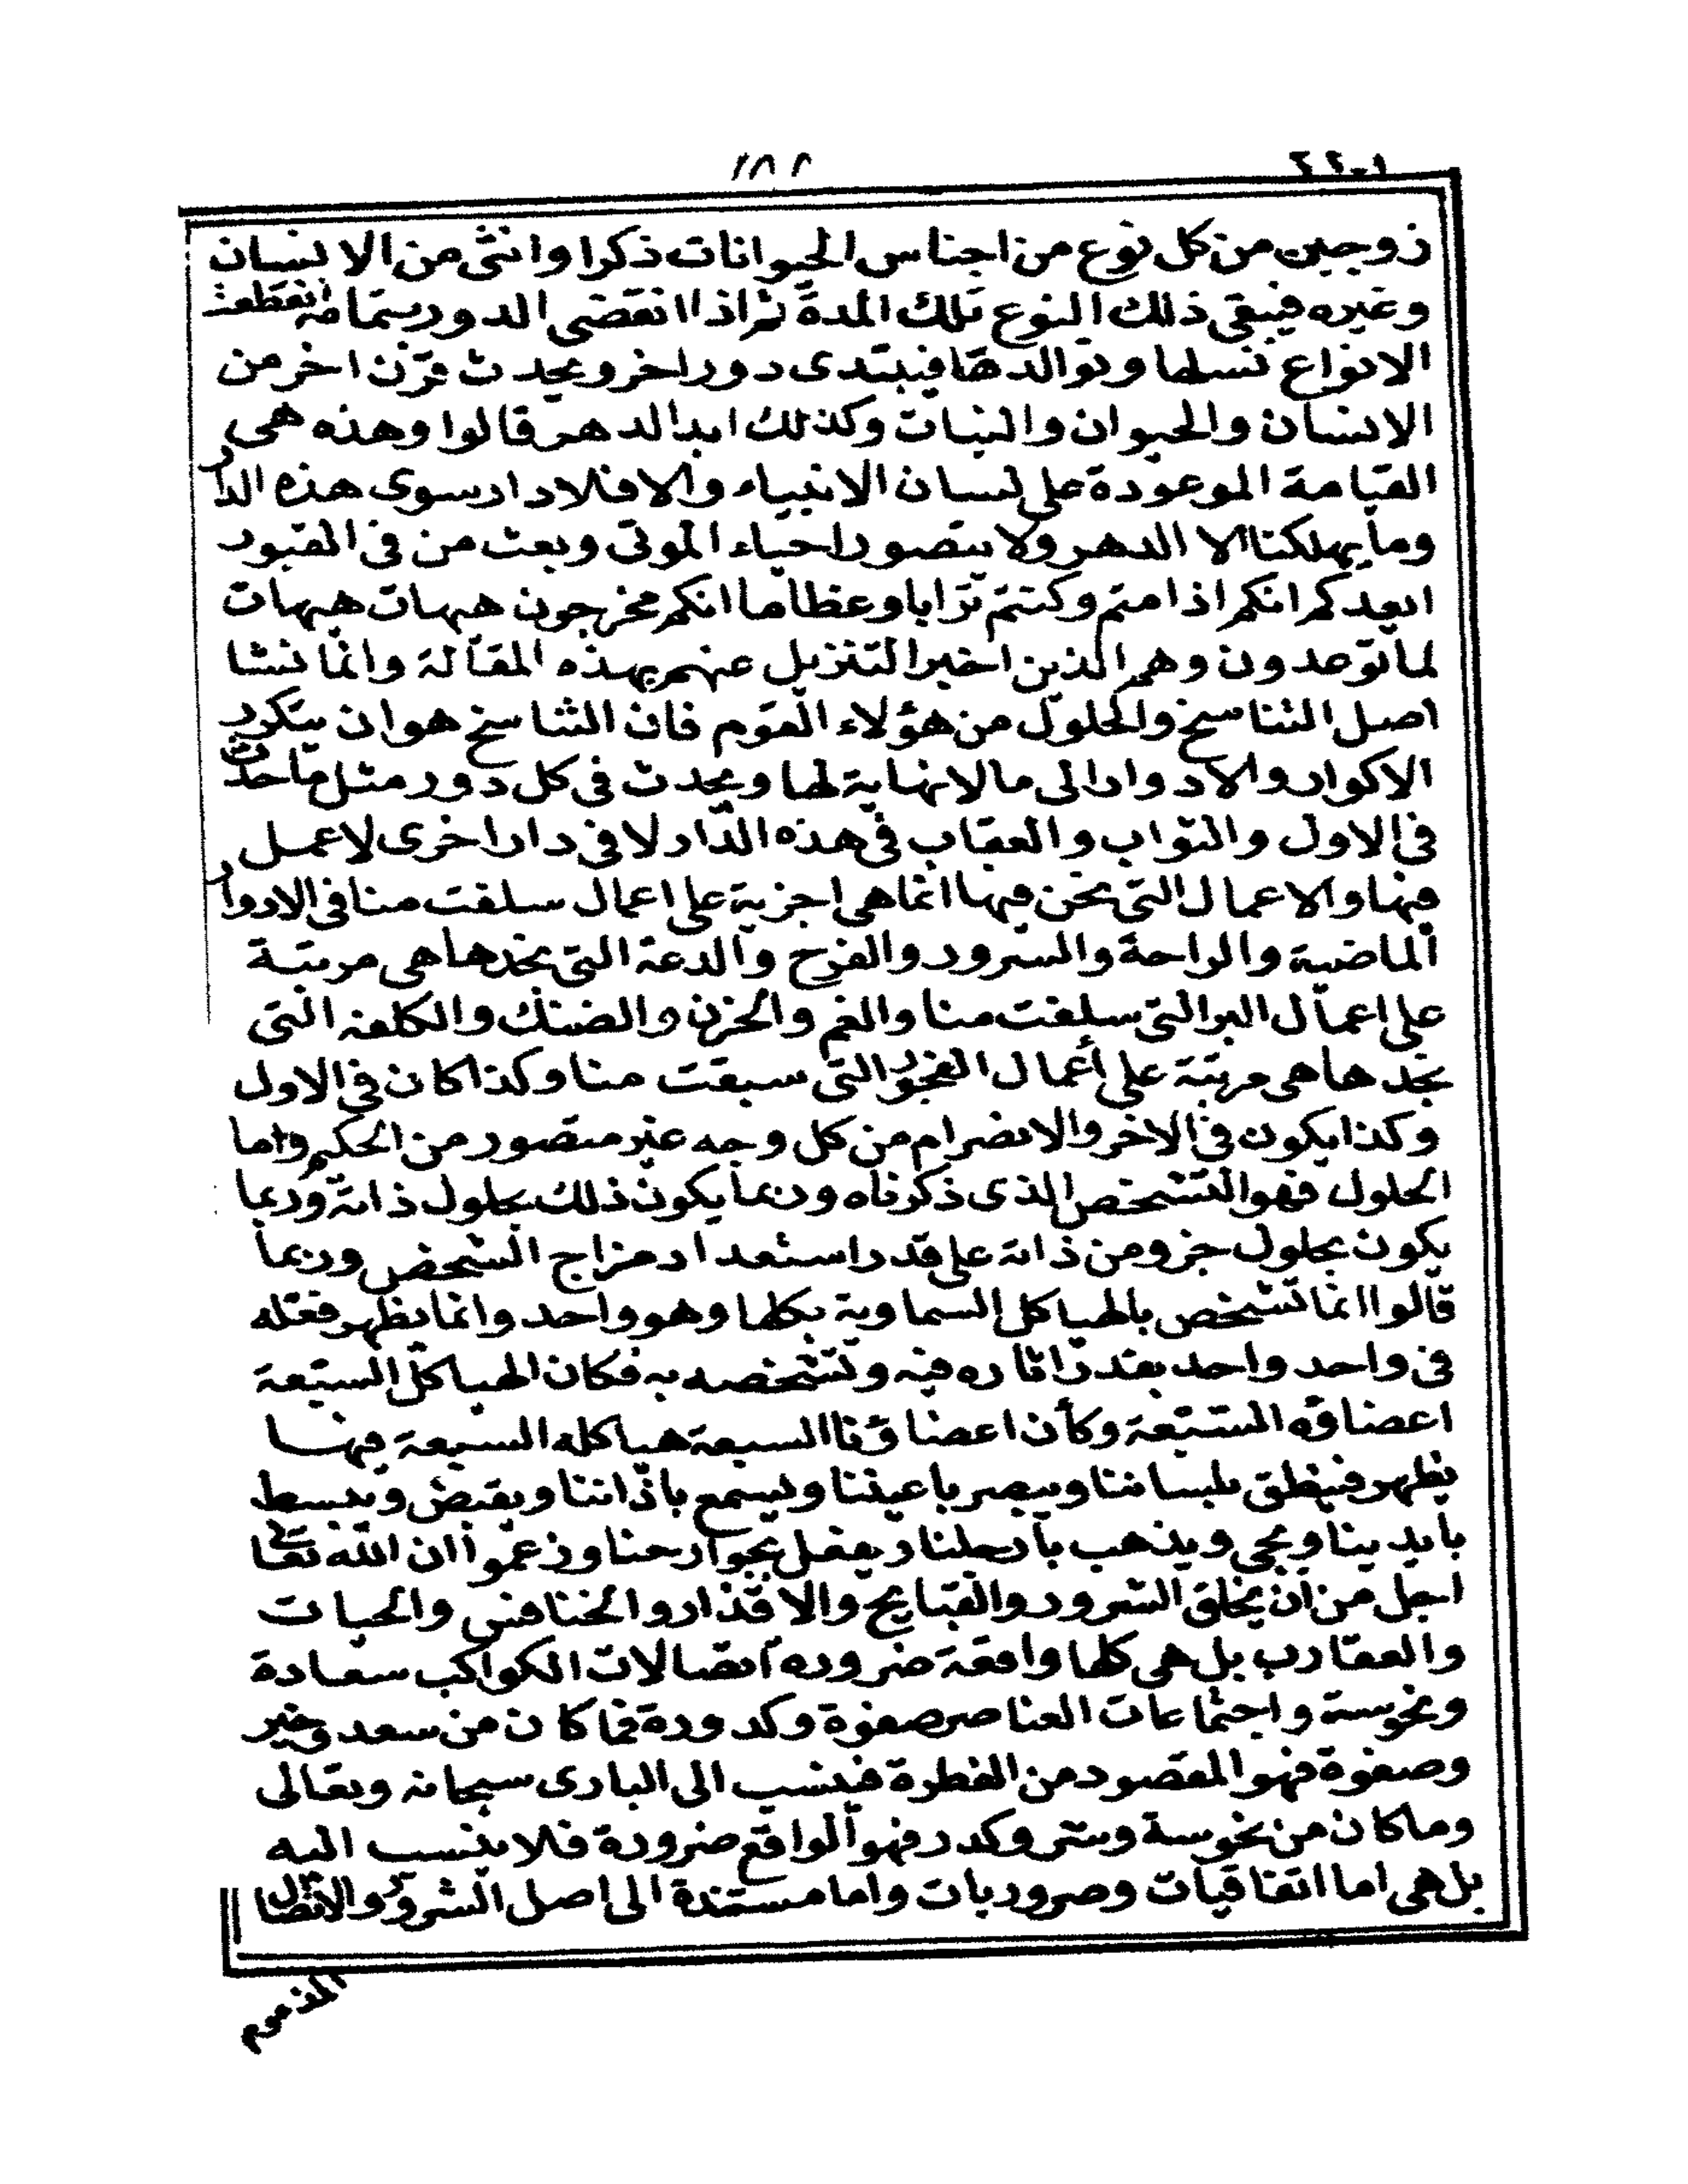 زوجين من كل نوع من اجناس الحيوانات ذكرا وانثى من الانسان
وغيره فيبقى ذلك النوع تلك المدة ثم اذا انقضى الدور بتمامه انقطعت
الانواع نسلها وتوالدها فيبتدى دور اخر ويحدث قرن اخر من
الانسان والحيوان والنبات وكذلك ابد الدهر قالوا وهذه هي
القيامة الموعودة على لسان الانبياء والا فلا دار سوى هذه الدار
وما يهلكنا الا الدهر ولا يتصور احياء الموتى وبعث من في القبور
ايعدكم انكم اذا متم وكنتم ترابا وعظاما انكم مخرجون هيهات هيهات
لما توعدون وهم الذين اخبر التنزيل عنهم بهذه المقالة وانما نشا
اصل التناسخ والحلول من هؤلاء القوم فان التناسخ هو ان يتكرر
الاكوار والادوار الى مالا نهاية لها ويحدث في كل دور مثل ما حدث
في الاول والثواب والعقاب في هذه الدار لا في دار اخرى لا عمل
فيها والاعمال التي نحن فيها انما هي اجزية على اعمال سلفت منا في الادوار
الماضية والراحة والسرور والفرح والدعة التي نجدها هي مرتبة
على اعمال البر التي سلفت منا والغم والحزن والضنك والكلفة التي
نجدها هي مرتبة على أعمال الفجور التي سبقت منا وكذا كان في الاول
وكذا يكون في الاخر والانصرام من كل وجه غير متصور من الحكيم واما
الحلول فهو التشخص الذي ذكرناه وربما يكون ذلك بحلول ذاته وربما
يكون بحلول جزو من ذاته على قدر استعداد مزاج الشخص وربما
قالوا انما تشخص بالهياكل السماوية بكلها وهو واحد وانما يظهر فعله
في واحد واحد بقدر اثاره فيه وتشخصه به فكان الهياكل السبعة
اعضاؤه السبعة وكأن اعضاؤنا السبعة هياكله السبعة فيها
يظهر فينطق بلساننا ويبصر باعيننا ويسمع باذاننا ويقبض ويبسط
بايدينا ويجي ويذهب بأرجلنا ويفعل بجوارحنا وزعموا ان الله تعالى
اجل من ان يخلق الشرور والقبايح والاقذار والخنافس والحيات
والعقارب بل هي كلها واقعة ضروره اتصالات الكواكب سعادة
ونحوسة واجتماعات العناصر صفوة وكدورة فما كان من سعد وخير
وصفوة فهو المقصود من الفطرة فينسب الى البارى سبحانه وتعالى
وما كان من نحوسة وشر وكدر فهو الواقع ضرورة فلا ينسب اليه
بل هي اما اتفاقيات وضروريات واما مستندة الى اصل الشرور والاتصال
المذموم